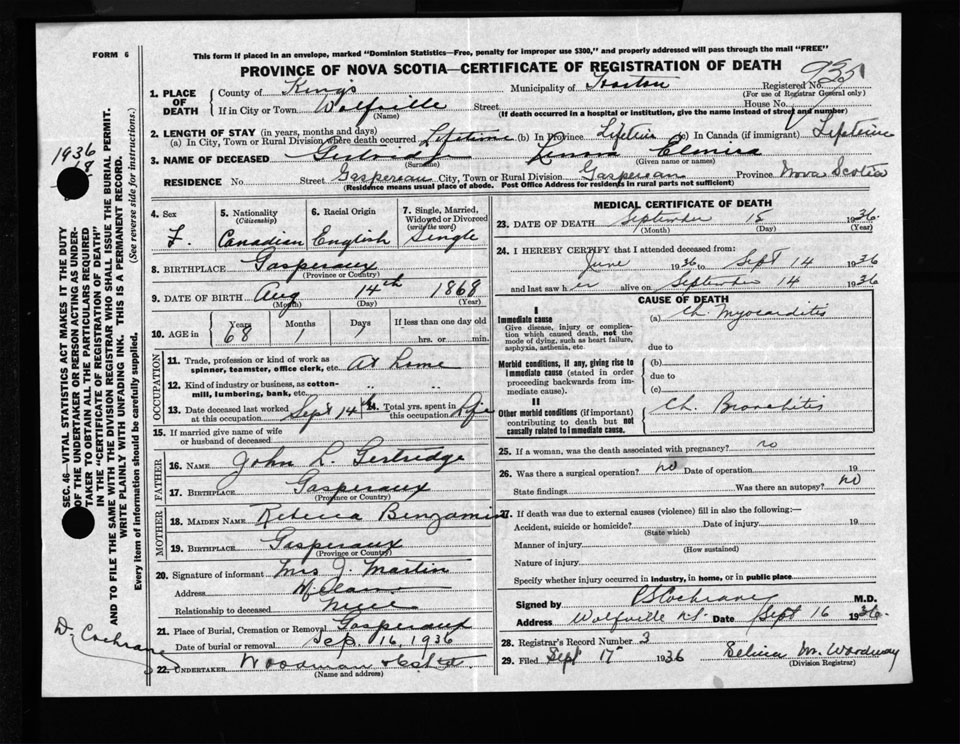 FORM 6
This form if placed in an envelope, marked "Dominion Statistics—Free, penalty for improper use $300," and properly addressed will pass through the mail "FREE"
PROVINCE OF NOVA SCOTIA—CERTIFICATE OF REGISTRATION OF DEATH
935
1. PLACE OF DEATH
County of Kings
Municipality of Horton
Registered No.
(For use of Registrar General only)
If in City or Town Wolfville
(Name)
Street
House No.
(If death occurred in a hospital or institution, give the name instead of street and number)
2. LENGTH OF STAY (in years, months and days)
(a) In City, Town or Rural Division where death occurred Lifetime (b) In Province Lifetime (c) In Canada (if immigrant) Lifetime
3. NAME OF DECEASED Gertridge
(Surname)
Elmira
(Given name or names)
RESIDENCE No. Street Gaspereau City, Town or Rural Division Gaspereau Province Nova Scotia
(Residence means usual place of abode. Post Office Address for residents in rural parts not sufficient)
4. Sex
F.
5. Nationality
(Citizenship)
Canadian
6. Racial Origin
English
7. Single, Married, Widowed or Divorced
(write the word)
Single
8. BIRTHPLACE Gaspereaux
(Province or Country)
9. DATE OF BIRTH Aug 14th 1868
(Month) (Day) (Year)
10. AGE in
Years Months Days If less than one day old
68 1 hrs. or min.
OCCUPATION
11. Trade, profession or kind of work as spinner, teamster, office clerk, etc. At home
12. Kind of industry or business, as cotton-mill, lumbering, bank, etc. " "
13. Date deceased last worked at this occupation Sept 14th
14. Total yrs. spent in this occupation Life
15. If married give name of wife or husband of deceased
FATHER
16. NAME John L. Gertridge
17. BIRTHPLACE Gaspereaux
(Province or Country)
MOTHER
18. MAIDEN NAME Rebecca Benjamin
19. BIRTHPLACE Gaspereaux
(Province or Country)
20. Signature of informant Mrs J. Martin
Address
Relationship to deceased
21. Place of Burial, Cremation or Removal Gaspereaux
Date of burial or removal Sep. 16, 1936
22. UNDERTAKER Woodman
(Name and address)
MEDICAL CERTIFICATE OF DEATH
23. DATE OF DEATH September 15 1936.
(Month) (Day) (Year)
24. I HEREBY CERTIFY that I attended deceased from:
June 1936 to Sept 14 1936
and last saw her alive on September 14 1936
CAUSE OF DEATH
I
Immediate cause
Give disease, injury or complication which caused death, not the mode of dying, such as heart failure, asphyxia, asthenia, etc.
(a) Ch Myocarditis
due to
Morbid conditions, if any, giving rise to immediate cause (stated in order proceeding backwards from immediate cause).
(b)
due to
(c)
II
Other morbid conditions (if important) contributing to death but not causally related to immediate cause.
Ch. Bronchitis
25. If a woman, was the death associated with pregnancy? no
26. Was there a surgical operation? no Date of operation 19
State findings Was there an autopsy? no
27. If death was due to external causes (violence) fill in also the following:—
Accident, suicide or homicide? Date of injury 19
(State which)
Manner of injury
(How sustained)
Nature of injury
Specify whether injury occurred in industry, in home, or in public place
Signed by Cochrane M.D.
Address Wolfville N.S. Date Sept 16 1936.
28. Registrar's Record Number 3
29. Filed Sept 17 1936 M. Woodway
(Division Registrar)
1936
SEC. 46—VITAL STATISTICS ACT MAKES IT THE DUTY
OF THE UNDERTAKER OR PERSON ACTING AS UNDERTAKER TO OBTAIN ALL THE PARTICULARS REQUIRED
IN THE "CERTIFICATE OF REGISTRATION OF DEATH"
AND TO FILE THE SAME WITH THE DIVISION REGISTRAR WHO SHALL ISSUE THE BURIAL PERMIT.
WRITE PLAINLY WITH UNFADING INK. THIS IS A PERMANENT RECORD.
Every item of information should be carefully supplied. (See reverse side for instructions.)
Dr. Cochrane